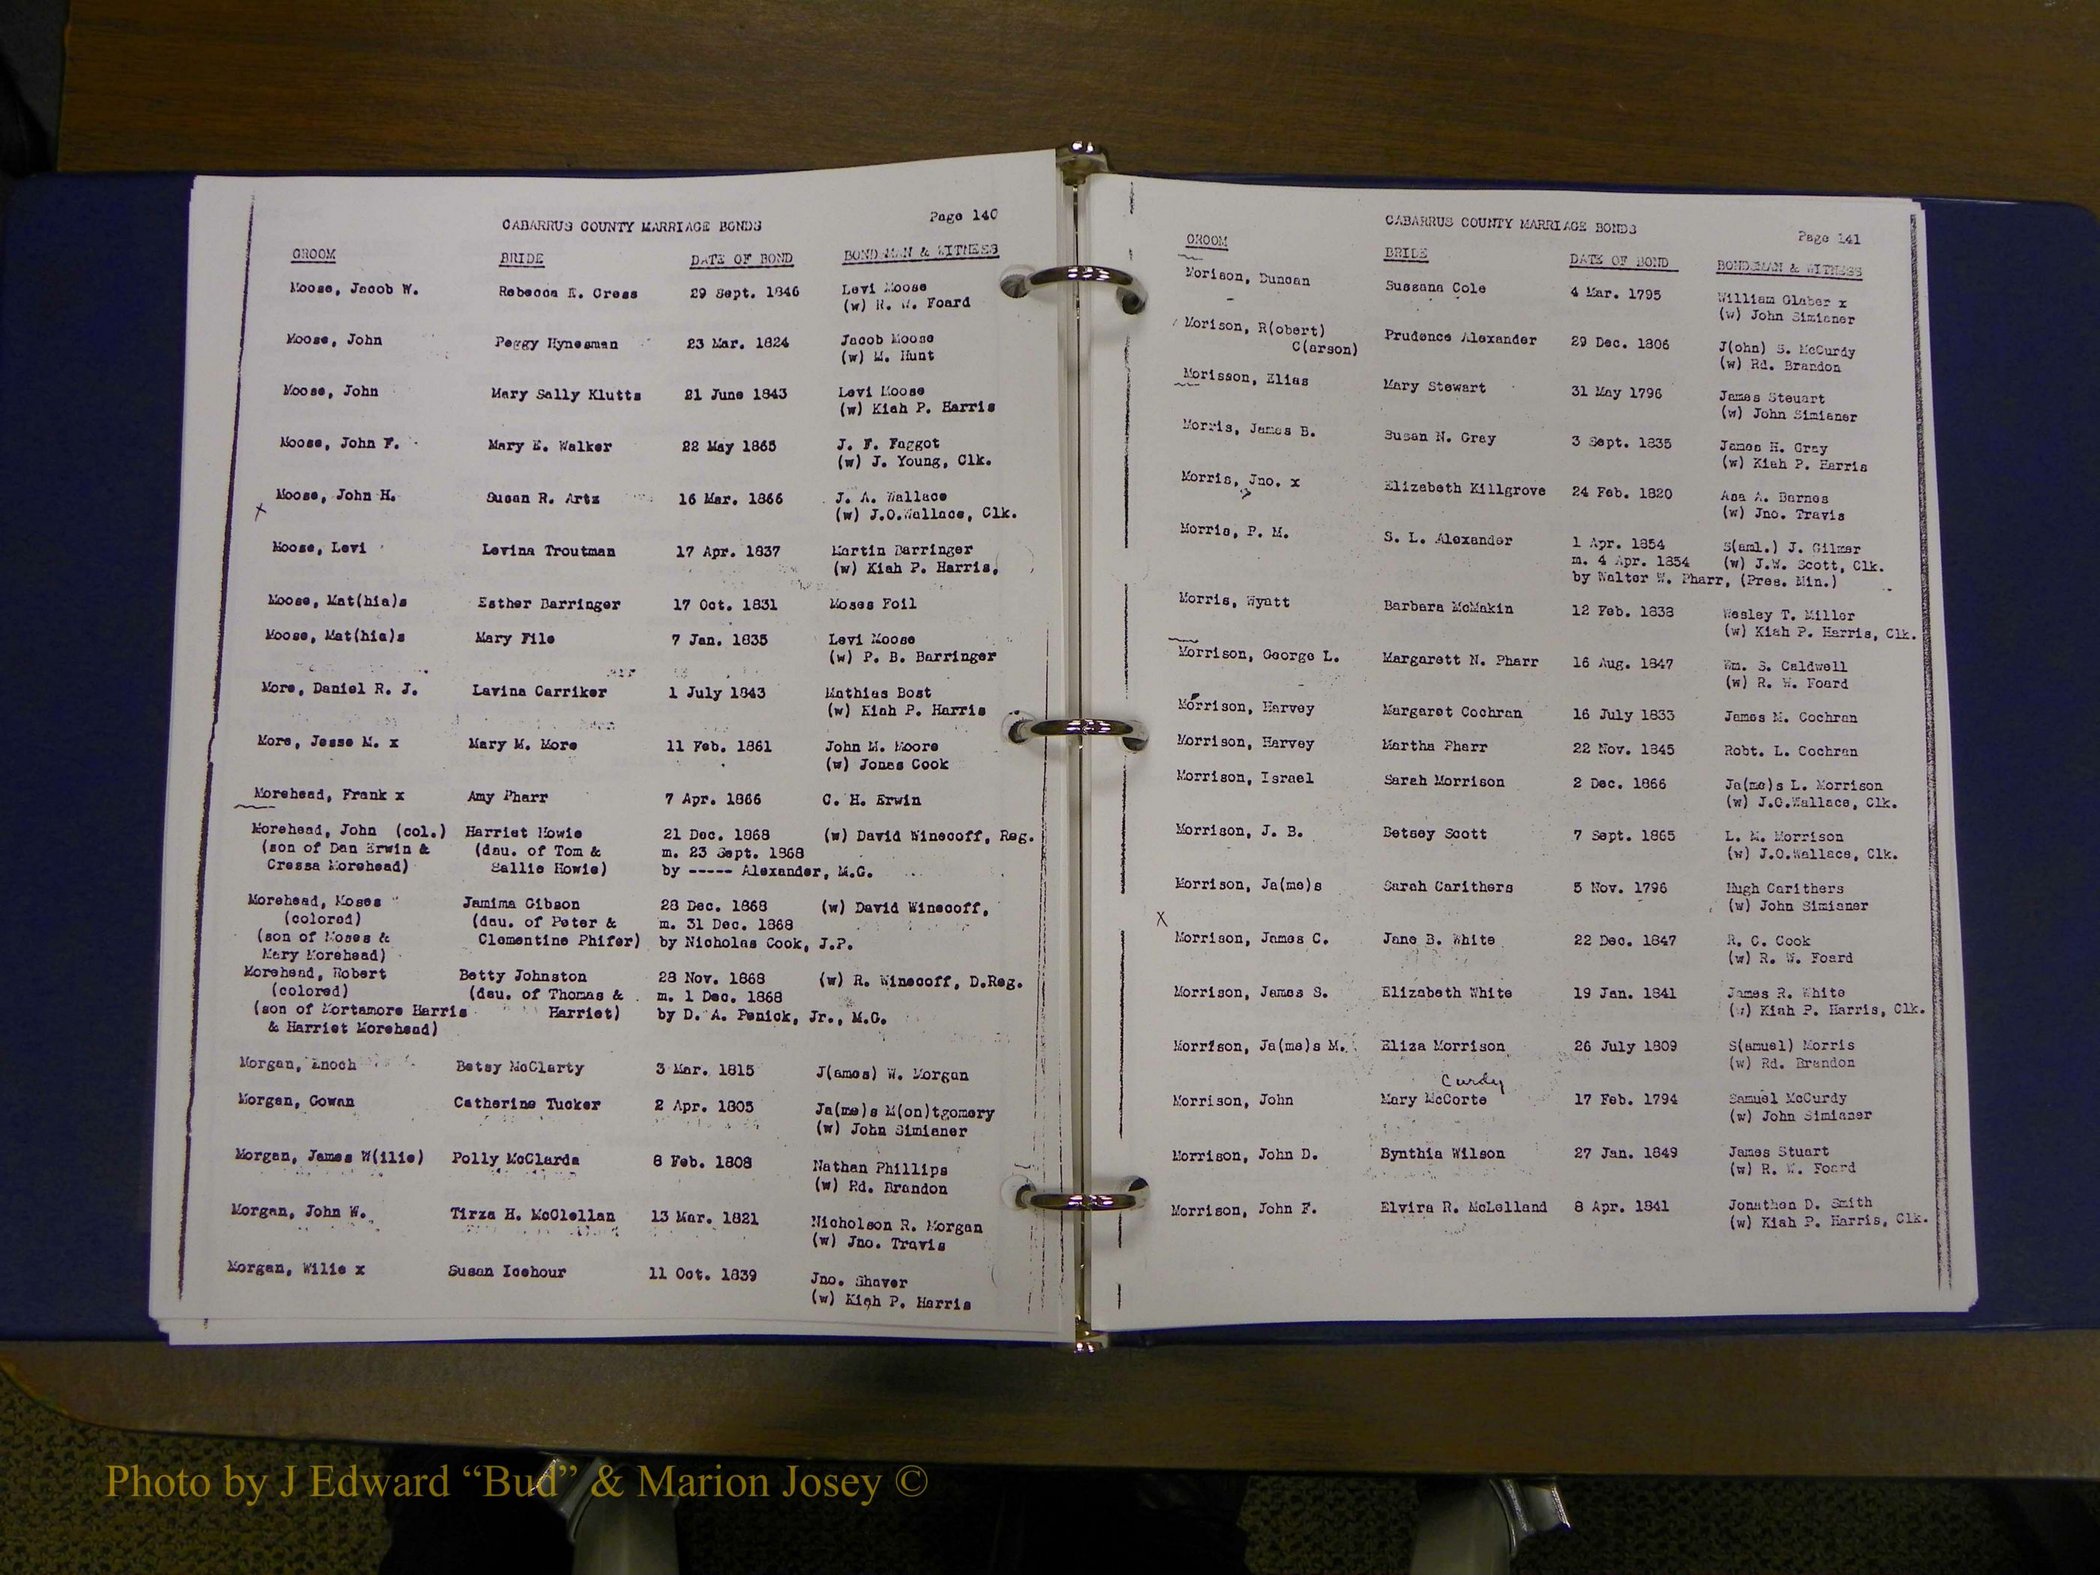 CABARRUS COUNTY MARRIAGE BONDS Page 140
GROOM BRIDE DATE OF BOND BONDSMAN & WITNESS
Moose, Jacob W. Rebecca E. Cress 29 Sept. 1846 Levi Moose
(w) R. W. Foard
Moose, John Peggy Hynesman 23 Mar. 1824 Jacob Moose
(w) M. Hunt
Moose, John Mary Sally Klutts 21 June 1843 Levi Moose
(w) Kiah P. Harris
Moose, John F. Mary E. Walker 22 May 1865 J. F. Faggot
(w) J. Young, Clk.
Moose, John H. Susan R. Artz 16 Mar. 1866 J. A. Wallace
x (w) J.O.Wallace, Clk.
Moose, Levi Levina Troutman 17 Apr. 1837 Martin Barringer
(w) Kiah P. Harris,
Moose, Mat(hia)s Esther Barringer 17 Oct. 1831 Moses Foil
Moose, Mat(hia)s Mary File 7 Jan. 1835 Levi Moose
(w) P. B. Barringer
More, Daniel R. J. Lavina Carriker 1 July 1843 Mathias Bost
(w) Kiah P. Harris
More, Jesse M. x Mary M. More 11 Feb. 1861 John M. Moore
(w) Jonas Cook
Morehead, Frank x Amy Pharr 7 Apr. 1866 C. H. Erwin
Morehead, John (col.) Harriet Howie 21 Dec. 1868 (w) David Winecoff, Reg.
(son of Dan Erwin & (dau. of Tom & m. 23 Sept. 1868
Cressa Morehead) Sallie Howie) by ----- Alexander, M.G.
Morehead, Moses Jamima Gibson 28 Dec. 1868 (w) David Winecoff,
(colored) (dau. of Peter & m. 31 Dec. 1868
(son of Moses & Clementine Phifer) by Nicholas Cook, J.P.
Mary Morehead)
Morehead, Robert Betty Johnston 28 Nov. 1868 (w) R. Winecoff, D.Reg.
(colored) (dau. of Thomas & m. 1 Dec. 1868
(son of Mortamore Harris Harriet) by D. A. Penick, Jr., M.G.
& Harriet Morehead)
Morgan, Enoch Betsy McClarty 3 Mar. 1815 J(ames) W. Morgan
Morgan, Gowan Catherine Tucker 2 Apr. 1805 Ja(me)s M(on)tgomery
(w) John Simianer
Morgan, James W(ilie) Polly McClarda 8 Feb. 1808 Nathan Phillips
(w) Rd. Brandon
Morgan, John W. Tirza H. McClellan 13 Mar. 1821 Nicholson R. Morgan
(w) Jno. Travis
Morgan, Wilie x Susan Icehour 11 Oct. 1839 Jno. Shaver
(w) Kiah P. Harris
CABARRUS COUNTY MARRIAGE BONDS Page 141
GROOM BRIDE DATE OF BOND BONDSMAN & WITNESS
Morison, Duncan Sussana Cole 4 Mar. 1795 William Glaber x
(w) John Simianer
Morison, R(obert) Prudence Alexander 29 Dec. 1806 J(ohn) S. McCurdy
C(arson) (w) Rd. Brandon
Morisson, Elias Mary Stewart 31 May 1796 James Steuart
(w) John Simianer
Morris, James B. Susan N. Gray 3 Sept. 1835 James H. Gray
(w) Kiah P. Harris
Morris, Jno. x Elizabeth Killgrove 24 Feb. 1820 Asa A. Barnes
? (w) Jno. Travis
Morris, P. M. S. L. Alexander 1 Apr. 1854 S(aml.) J. Gilmer
m. 4 Apr. 1854 (w) J.W. Scott, Clk.
by Walter W. Pharr, (Pres. Min.)
Morris, Wyatt Barbara McMakin 12 Feb. 1838 Wesley T. Miller
(w) Kiah P. Harris, Clk.
Morrison, George L. Margarett N. Pharr 16 Aug. 1847 Wm. S. Caldwell
(w) R. W. Foard
Morrison, Harvey Margaret Cochran 16 July 1833 James M. Cochran
Morrison, Harvey Martha Pharr 22 Nov. 1845 Robt. L. Cochran
Morrison, Israel Sarah Morrison 2 Dec. 1866 Ja(me)s L. Morrison
(w) J.O.Wallace, Clk.
Morrison, J. B. Betsey Scott 7 Sept. 1865 L. M. Morrison
(w) J.O.Wallace, Clk.
Morrison, Ja(me)s Sarah Carithers 5 Nov. 1796 Hugh Carithers
x (w) John Simianer
Morrison, James C. Jane B. White 22 Dec. 1847 R. C. Cook
(w) R. W. Foard
Morrison, James S. Elizabeth White 19 Jan. 1841 James R. White
(w) Kiah P. Harris, Clk.
Morrison, Ja(me)s M. Eliza Morrison 26 July 1809 S(amuel) Morris
(w) Rd. Brandon
Curdy
Morrison, John Mary McCorte 17 Feb. 1794 Samuel McCurdy
(w) John Simianer
Morrison, John D. Bynthia Wilson 27 Jan. 1849 James Stuart
(w) R. W. Foard
Morrison, John F. Elvira R. McLelland 8 Apr. 1841 Jonathan D. Smith
(w) Kiah P. Harris, Clk.
Photo by J Edward “Bud” & Marion Josey ©